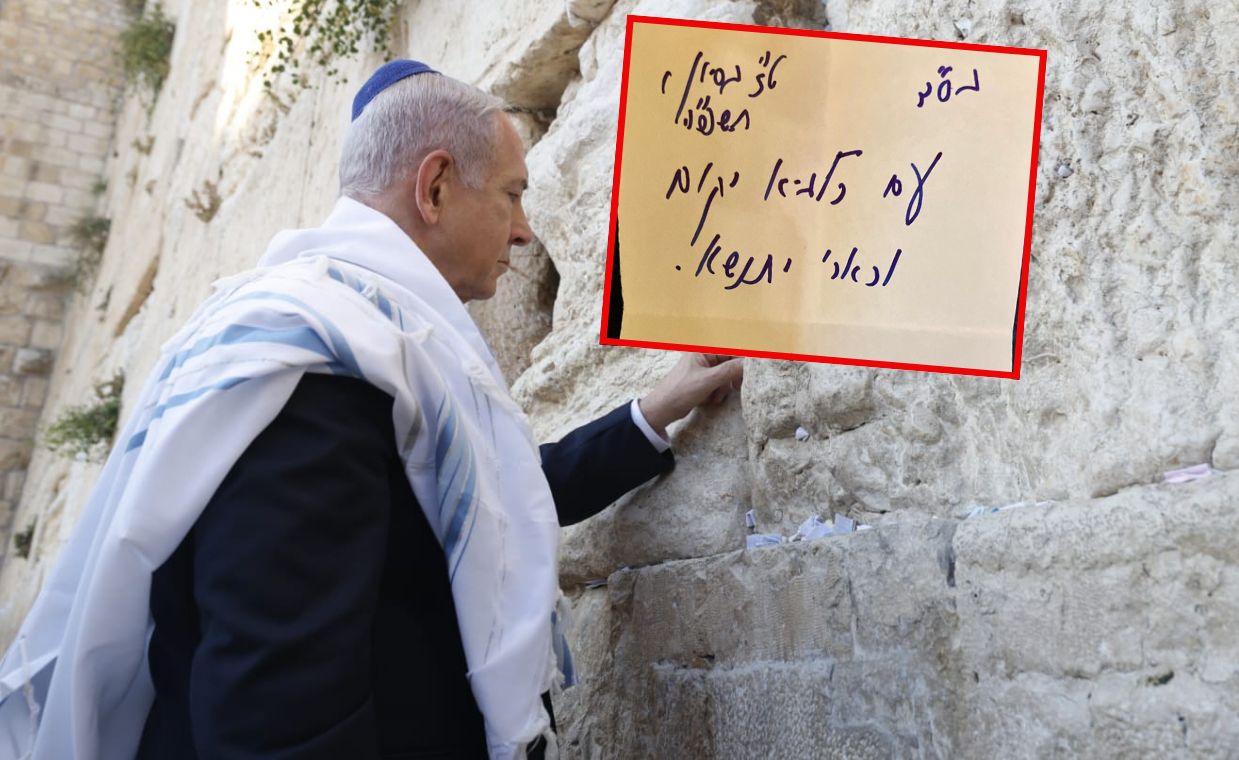 בס"ד
ט"ז בסיון,
תשפ"ה
עם כלביא יקום
וכארי יתנשא.